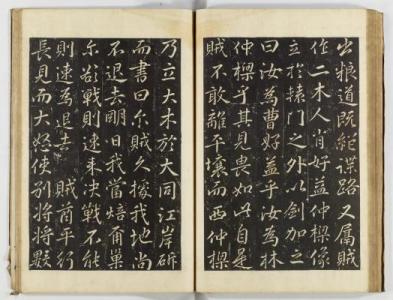 出粮道既絶諜路又屬賊
作二木人肖好益仲樑像
立於轅門之外以劍加之
曰汝為曹好益乎汝為林
仲樑乎其見畏如此自是
賊不敢離平壤而西仲樑
乃立大木於大同江岸斫
而書曰尓賊久據我地尚
不退去明日我當焙爾巢
尓欲戰則速来决戰不能
則速為退去 賊酋平行
長見而大怒使別將將數